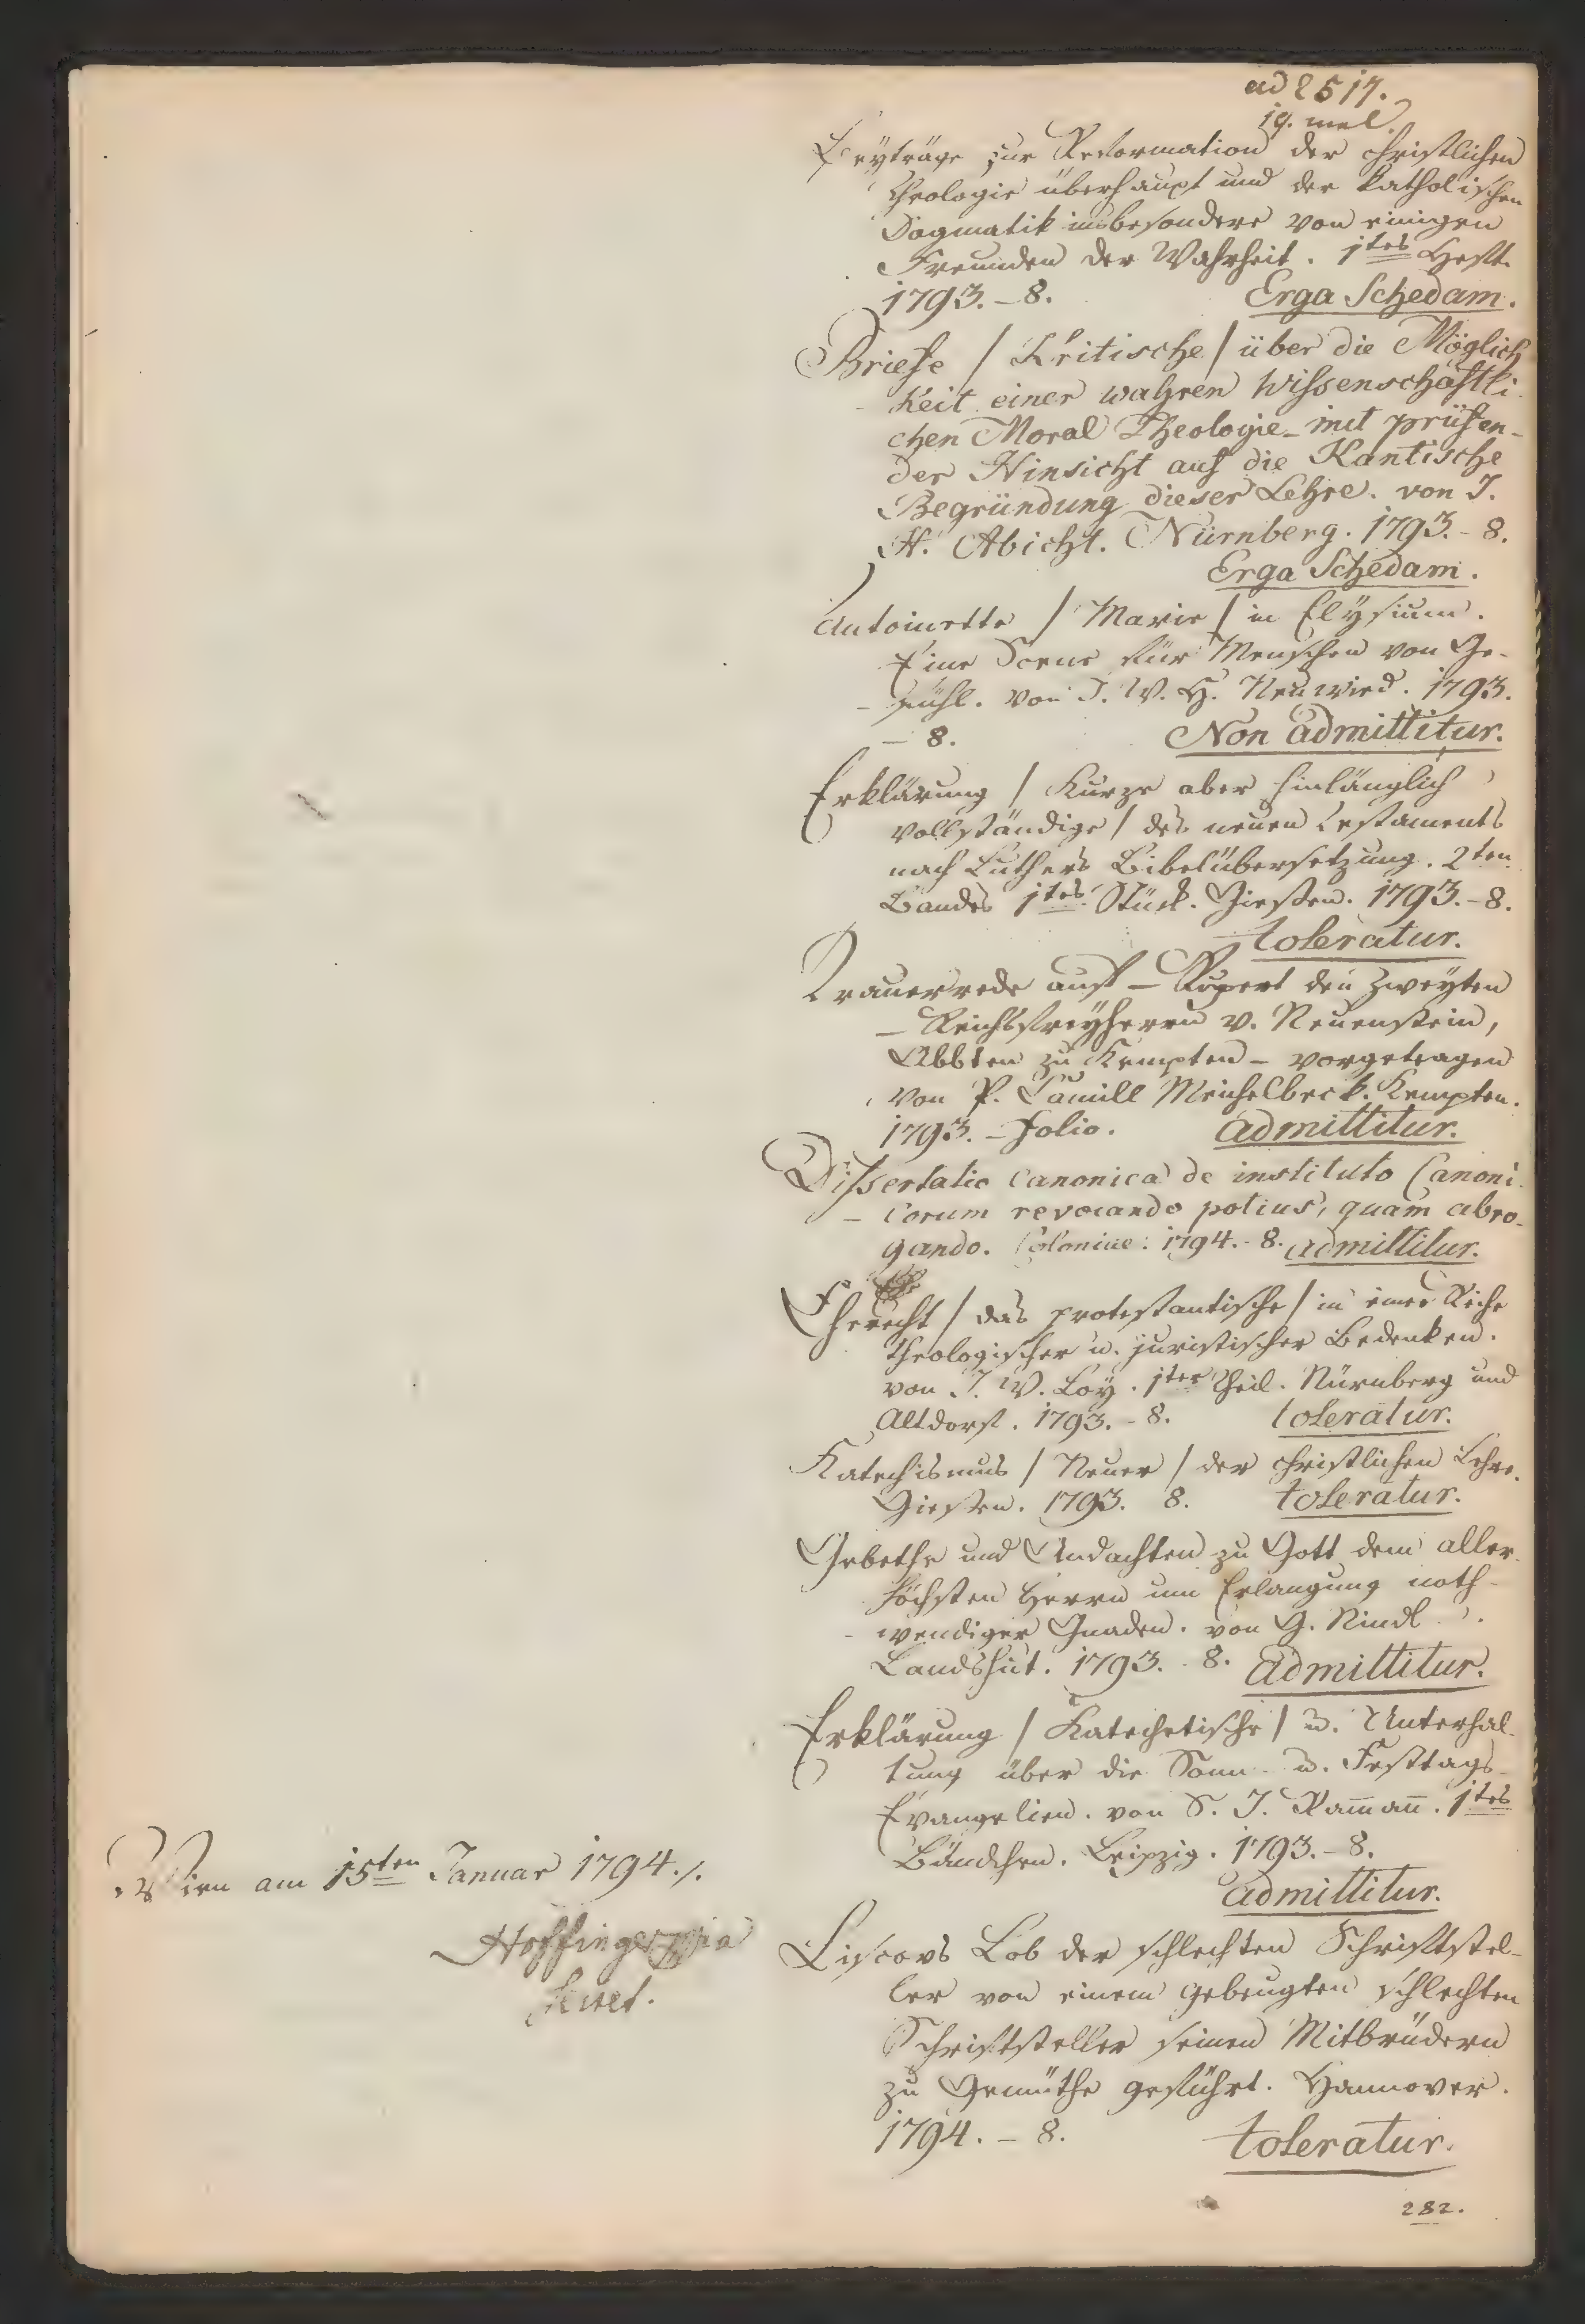 ad 2517.
19. mel.
Beyträge zur Reformation der christlichen
Theologie überhaupt und der katholischen
Dogmatik insbesondere von einigen
Freunden der Wahrheit. 1tes Heft.
1793. – 8. Erga Schedam.
Briefe / Kritische / über die Möglich
keit einer wahren wissenschaftli
chen Moral Theologie – mit prüfen-
der Hinsicht auf die Kantische
Begründung dieser Lehre. von J.
H. Abicht. Nürnberg. 1793. – 8.
Erga Schedam.
Antoinette / Marie / in Elysium.
Eine Scene für Menschen von Ge-
fühl. von J. W. H. Neuwied. 1793.
– 8. Non admittitur.
Erklärung / Kurze aber hinlänglich
vollständige / des neuen Testaments
nach Luthers Bibelübersetzung. 2ten
Bandes 1tes Stück. Giessen. 1793. – 8.
toleratur.
Trauerrede auf – Rupert den Zweyten
– Reichsfreyherrn v. Neuenstein,
Abbten zu Kempten – vorgetragen
von P. Camill Meichelbeck. Kempten.
1793. – Folio. admittitur.
Dissertatio canonica de instituto Canoni
– corum revocando potius, quam abro-
gando. Coloniae. 1794. – 8. admittitur.
Eherecht / das protestantische / in einer Reihe
theologischer u. juristischer Bedenken.
von J. W. Loy. 1ter Theil. Nürnberg und
Altdorf. 1793. – 8. toleratur.
Katechismus / Neuer / der christlichen Lehre.
Giessen. 1793. 8. toleratur.
Gebethe und Andachten zu Gott dem aller-
höchsten Herrn um Erlangung noth-
wendiger Gnaden. von G. Rindl.
Landshut. 1793. – 8. admittitur.
Erklärung / Katechetische / u. Unterhal-
tung über die Sonn- u. Festtags-
Evangelien. von S. J. Ramañ. 1tes
Bändchen. Leipzig. 1793. – 8.
admittitur.
Liscovs Lob der schlechten Schriftstel-
ler von einem gebeugten schlechten
Schriftsteller seinen Mitbrüdern
zu Gemüthe geführt. Hannover.
1794. – 8. toleratur.
282.
Wien am 15ten Januar 1794./.
Hoffinger